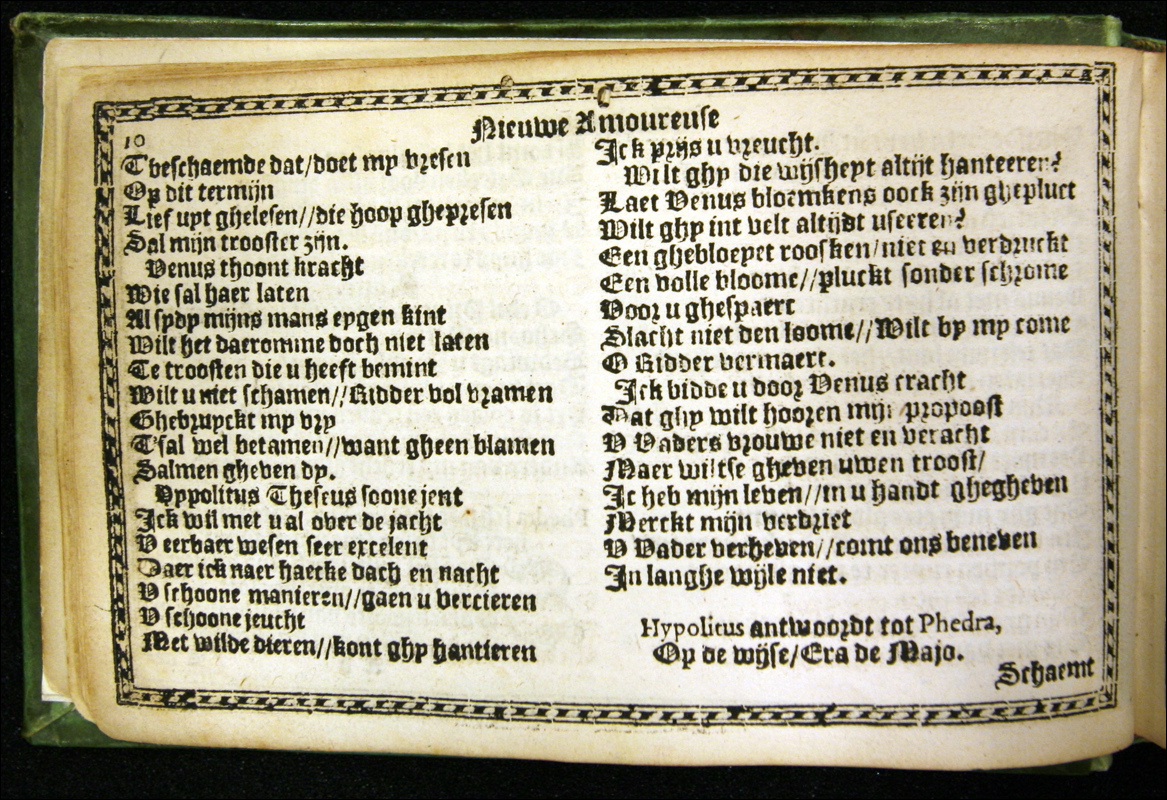 Nieuwe Amoureuse
10
Tbeschaemde dat/doet my vresen
Op dit termijn
Lief uyt ghelesen//die hoop ghepresen
Sal mijn trooster zijn.
Venus thoont kracht
Wie sal haer laten
Al sydy mijns mans eygen kint
Wilt het daeromme doch niet laten
Te troosten die u heeft bemint
Wilt u niet schamen//Ridder vol vramen
Ghebruyckt my vry
T'sal wel betamen//want gheen blamen
Salmen gheven dy.
Hyppolitus Theseus soone jent
Ick wil met u al over de jacht
V eerbaer wesen seer excelent
Daer ick naer haecke dach en nacht
V schoone manieren//gaen u vercieren
V schoone jeucht
Met wilde dieren//kont ghy hantieren
Ick prijs u vreucht.
Wilt ghy die wijsheyt altijt hanteeren?
Laet Venus bloemkens oock zijn ghepluct
Wilt ghy int velt altijdt useeren?
Een ghebloeyet roosken/niet en verdruckt
Een volle bloome//pluckt sonder schrome
Voor u ghespaert
Slacht niet den loome//Wilt by my come
O Ridder vermaert.
Ick bidde u door Venus cracht
Dat ghy wilt hooren mijn propoost
V Vaders vrouwe niet en veracht
Maer wiltse gheven uwen troost/
Ic heb mijn leven//in u handt ghegheven
Merckt mijn verdriet
V Vader verheven//comt ons beneven
In langhe wijle niet.
Hypolitus antwoordt tot Phedra,
Op de wijse/Era de Majo.
Schaemt